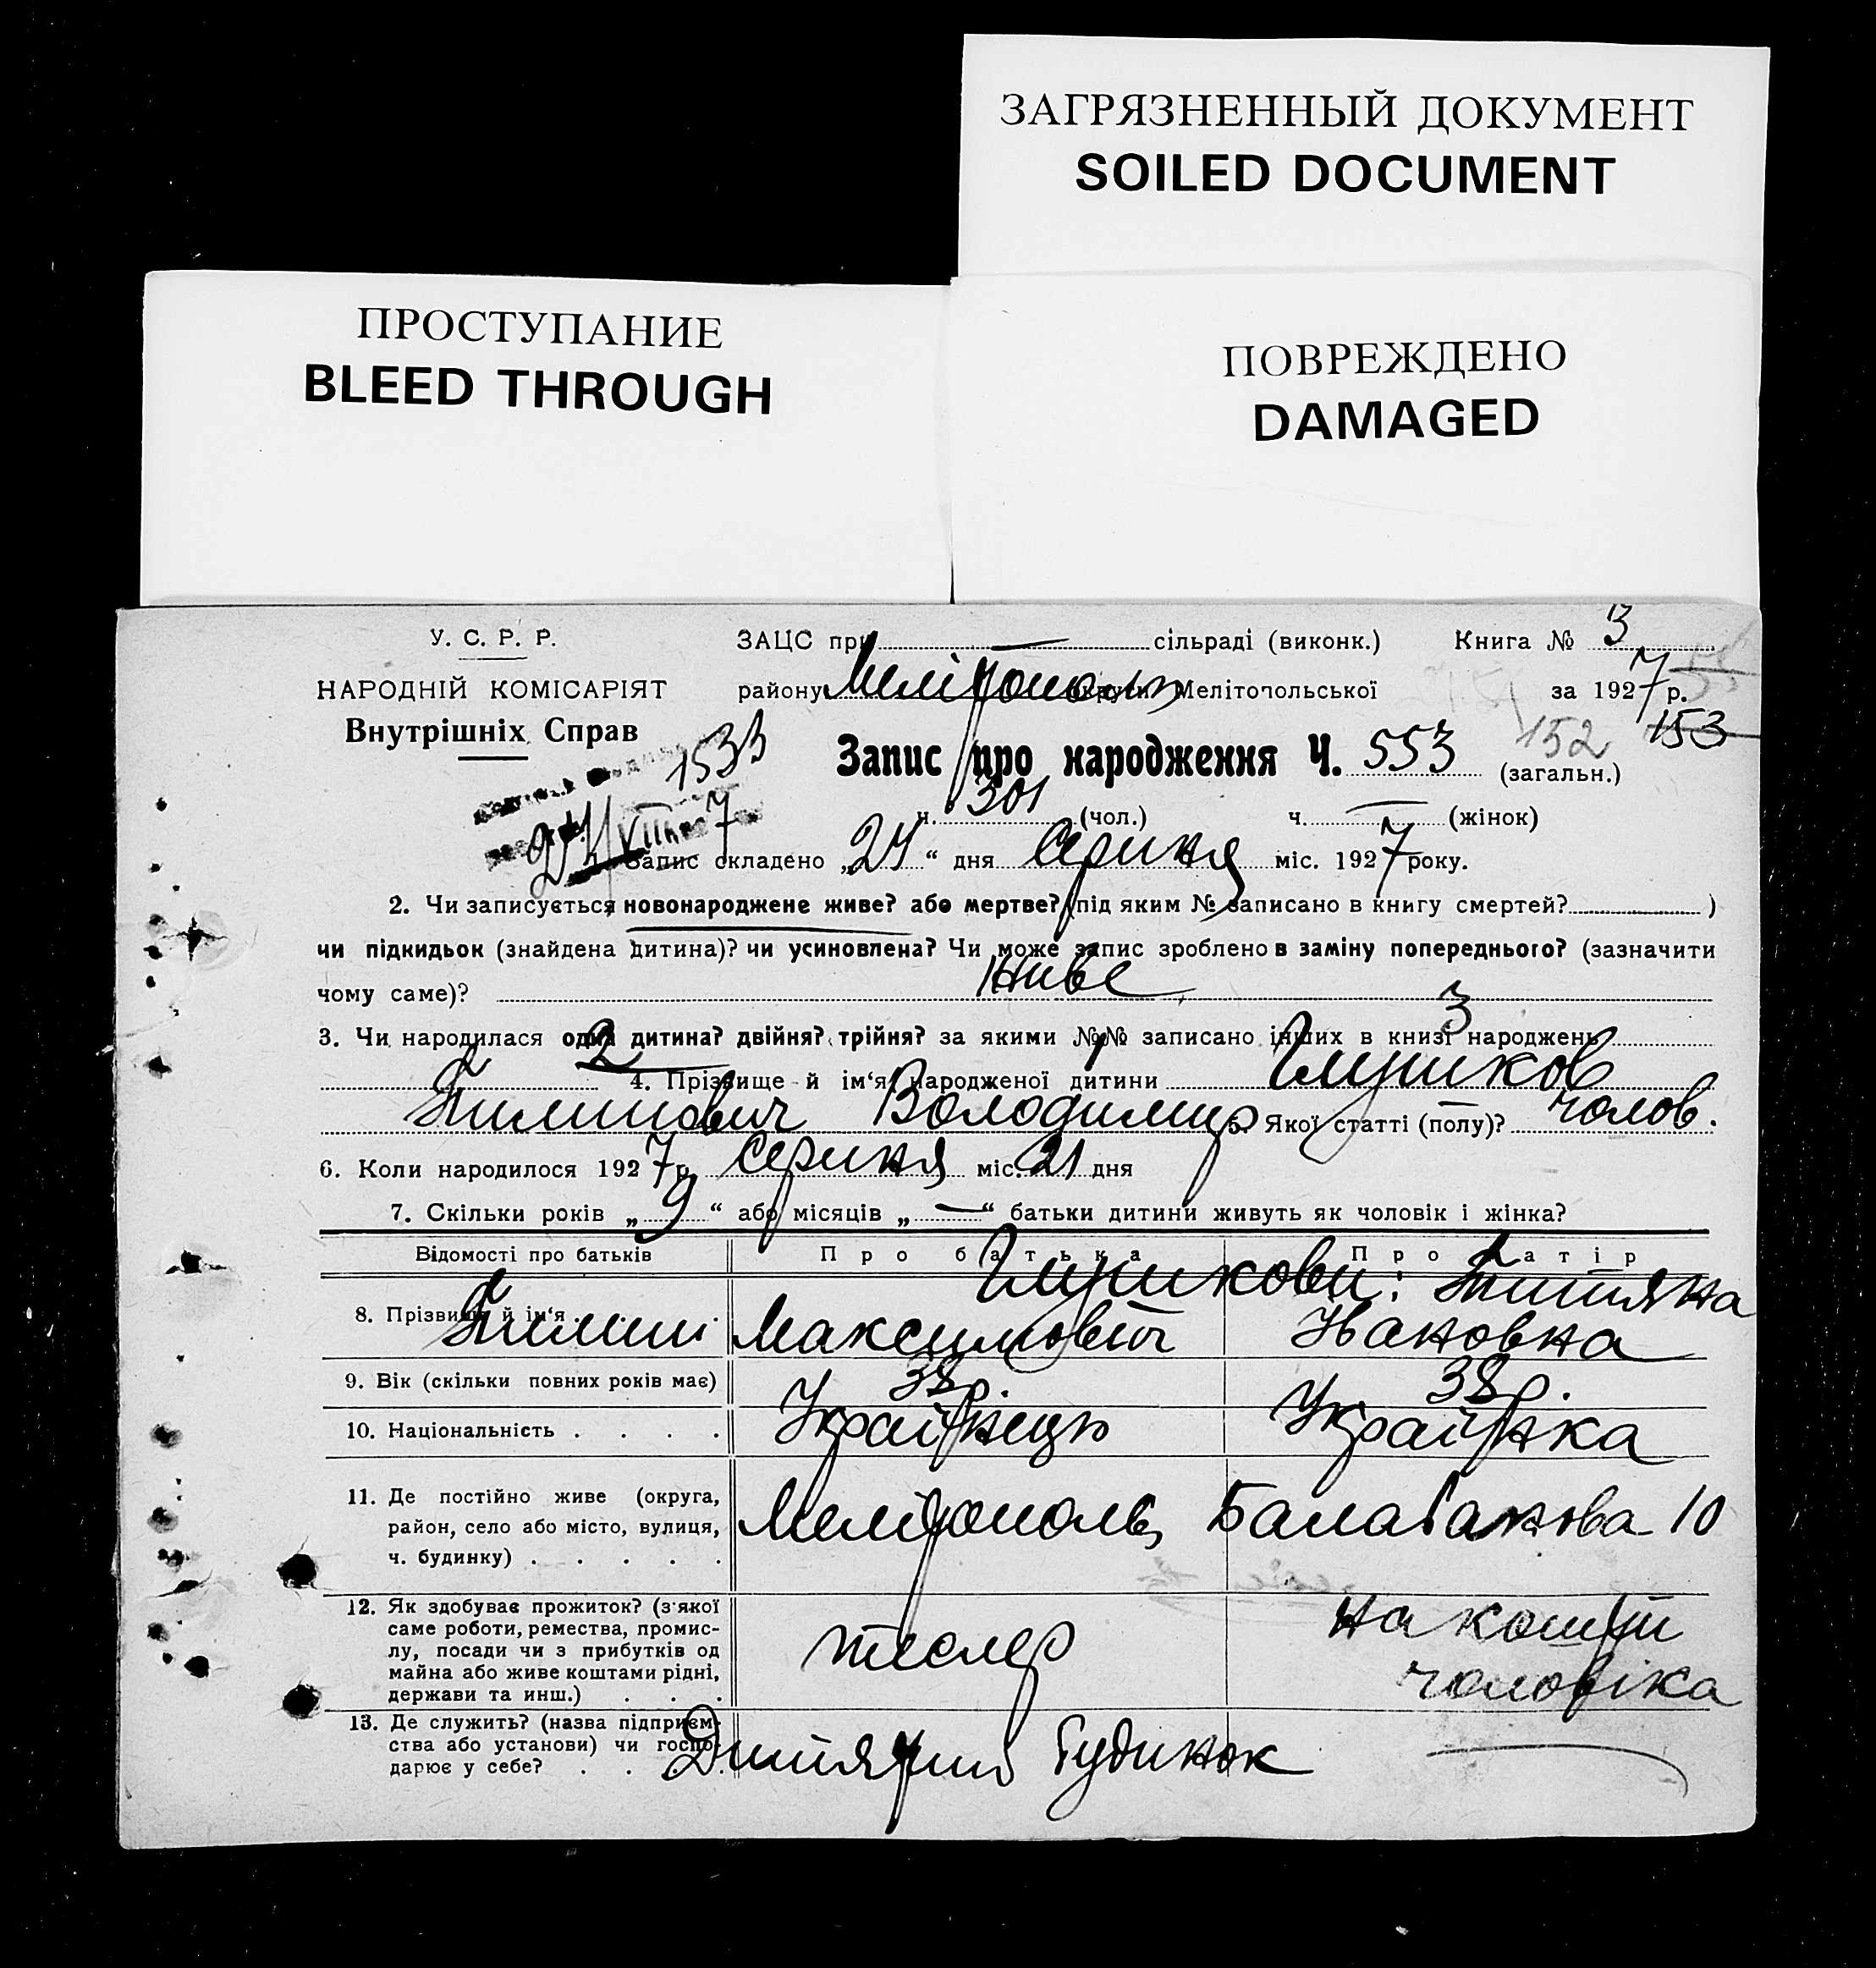 ЗАГРЯЗНЕННЫЙ ДОКУМЕНТ
SOILED DOCUMENT
ПРОСТУПАНИЕ
BLEED THROUGH
ПОВРЕЖДЕНО
DAMAGED
У. С. Р. Р.
НАРОДНІЙ КОМІСАРІЯТ
Внутрішніх Справ
ЗАЦС при — сільраді (виконк.) Книга № 3
району Мелітополь округи Мелітопольської за 1927 р.
1533
152 153
Запис про народження Ч. 553 (загальн.)
ч. 301 (чол.) ч. — (жінок)
24/VIII 7
1. Запис складено „24“ дня Серпня міс. 1927 року.
2. Чи записується новонароджене живе? або мертве? (під яким № записано в книгу смертей? )
чи підкидьок (знайдена дитина)? чи усиновлена? Чи може запис зроблено в заміну попереднього? (зазначити
чому саме)? Живе
3. Чи народилася одна дитина? двійня? трійня? за якими №№ записано інших в книзі народжень 3
2 4. Прізвище й ім‘я народженої дитини
Тимішович Володимир 5. Якої статті (полу)? чолов.
6. Коли народилося 1927 р. Серпня міс. 21 дня
7. Скільки років „9“ або місяців „—“ батьки дитини живуть як чоловік і жінка?
Відомості про батьків Про батька Про матір
8. Прізвище й ім‘я Максимович Івановна
9. Вік (скільки повних років має) 38 р. 38 р.
10. Національність Українець Українка
11. Де постійно живе (округа,
район, село або місто, вулиця,
ч. будинку)
Мелітополь, Балабанова 10
12. Як здобуває прожиток? (з‘якої
саме роботи, ремества, промис-
лу, посади чи з прибутків од
майна або живе коштами рідні,
держави та инш.)
тесляр
на кошти
чоловіка
13. Де служить? (назва підприєм-
ства або установи) чи госпо-
дарює у себе?
Дитячий будинок